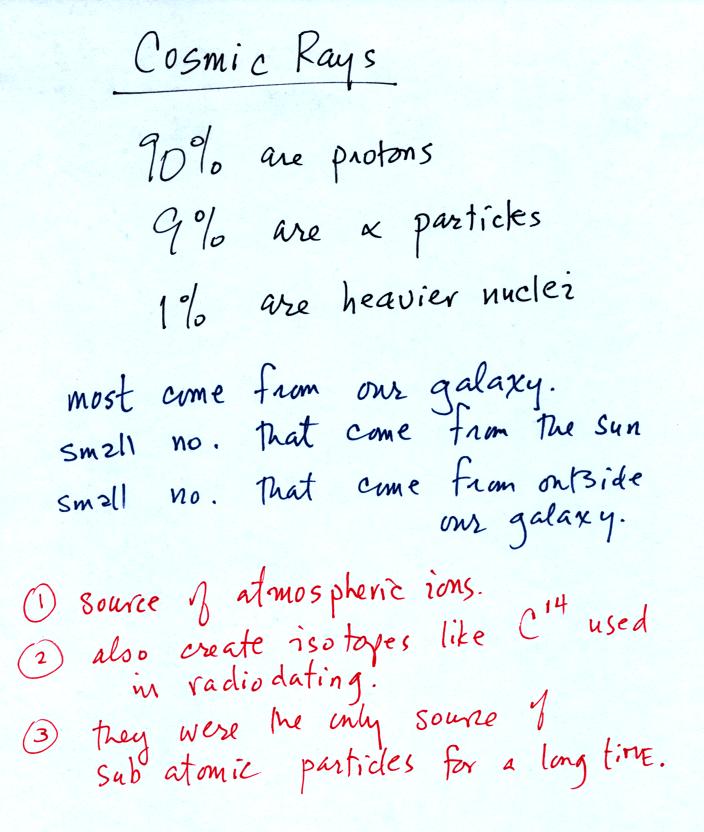 Cosmic Rays
90% are protons
9% are α particles
1% are heavier nuclei
most come from our galaxy.
small no. that come from the sun
small no. that come from outside
our galaxy.
① source of atmospheric ions.
② also create isotopes like C¹⁴ used
in radiodating.
③ they were the only source of
sub atomic particles for a long time.